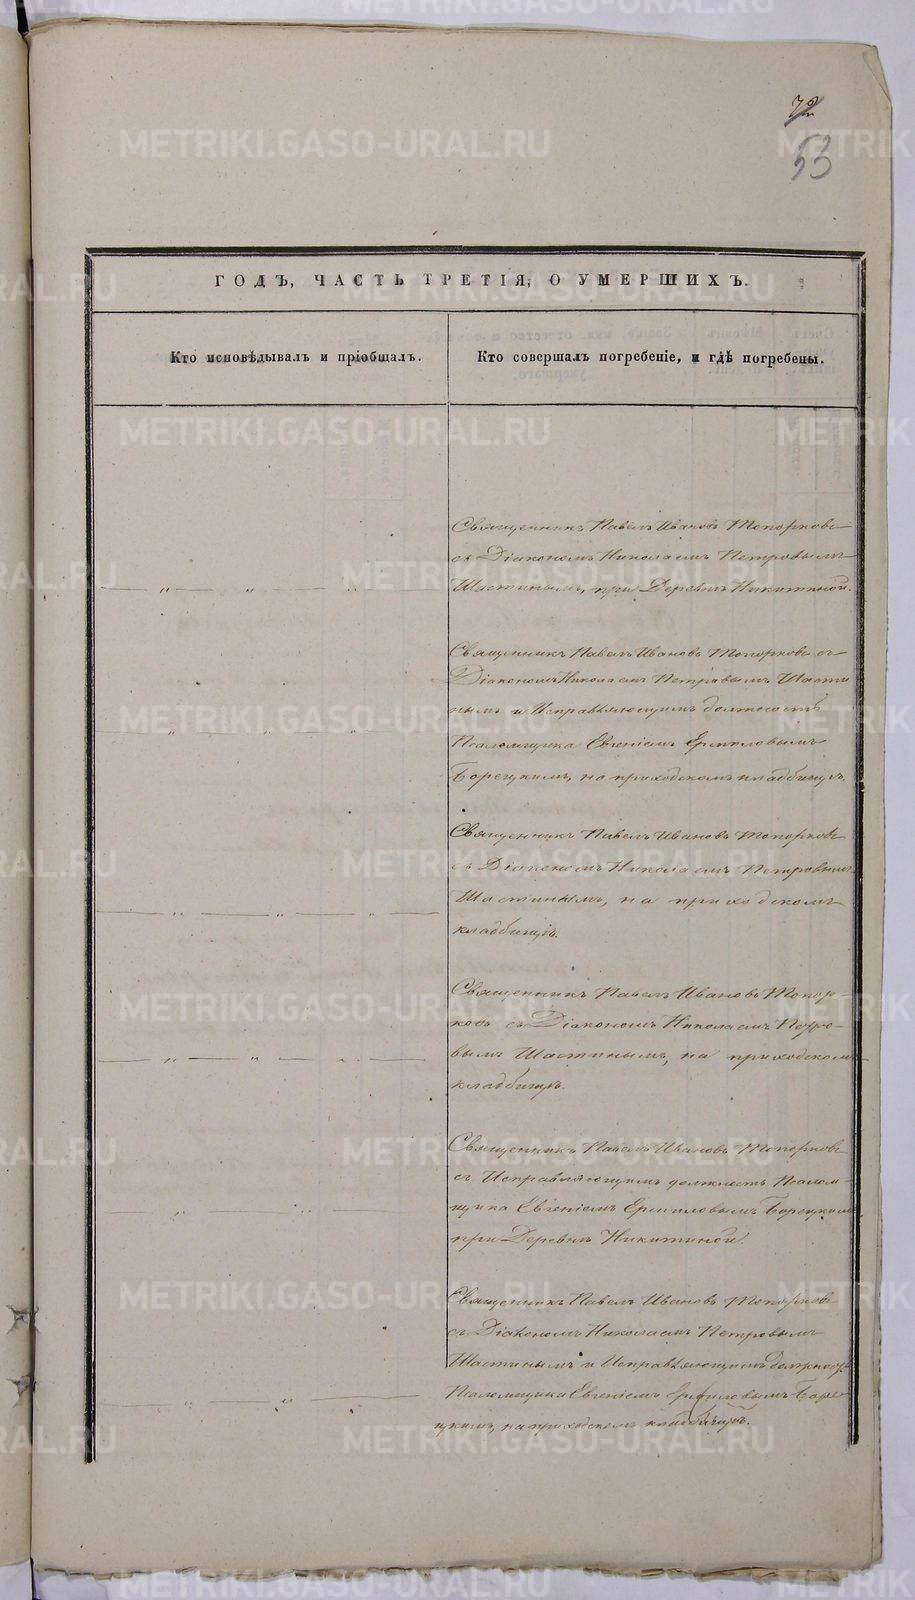 72
53
ГОДЪ, ЧАСТЬ ТРЕТІЯ, О УМЕРШИХЪ.
Кто исповѣдывалъ и пріобщалъ.
Кто совершалъ погребеніе, и гдѣ погребены.
Священникъ Павелъ Ивановъ Топорковъ
съ Діакономъ Николаемъ Петровымъ
— „ — „ — „ Шастинымъ, при Деревнѣ Никитиной.
Священникъ Павелъ Ивановъ Топорковъ съ
Діакономъ Николаемъ Петровымъ Шасти
нымъ и Исправляющимъ должность
Псаломщика Евгеніемъ Ермиловымъ
Борецкимъ, на приходскомъ кладбищѣ.
Священникъ Павелъ Ивановъ Топорковъ
съ Діакономъ Николаемъ Петровымъ
Шастинымъ, на приходскомъ
— „ — „ — „ —
кладбищѣ.
Священникъ Павелъ Ивановъ Топор
ковъ съ Діакономъ Николаемъ Петро-
вымъ Шастинымъ, на приходскомъ
— „ — „ — „ —
кладбищѣ.
Священникъ Павелъ Ивановъ Топорковъ
съ Исправляющимъ должность Псалом-
щика Евгеніемъ Ермиловымъ Борецкимъ
при Деревнѣ Никитиной.
Священникъ Павелъ Ивановъ Топорковъ
съ Діакономъ Николаемъ Петровымъ
Шастинымъ и Исправляющимъ должность
Псаломщика Евгеніемъ Ермиловымъ Боре
цкимъ, на приходскомъ кладбищѣ.
METRIKI.GASO-URAL.RU